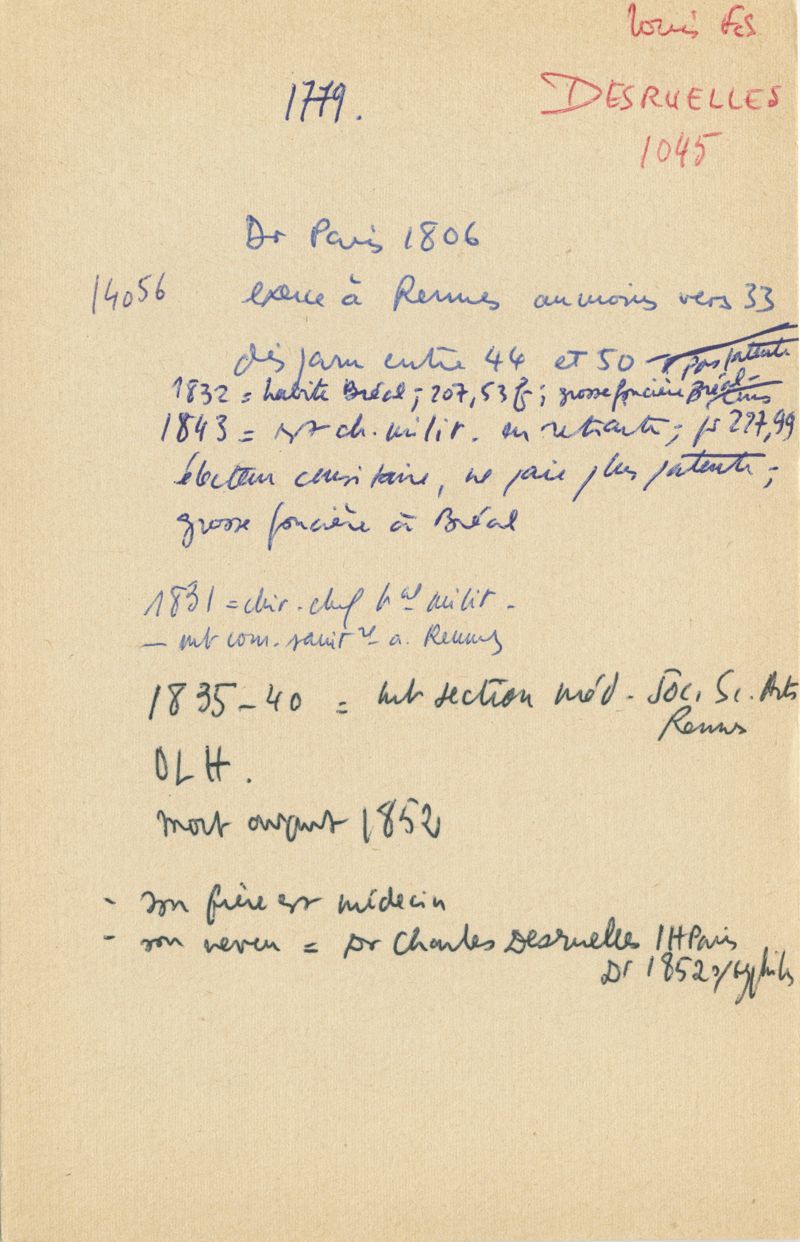 Louis Fçs
DESRUELLES
1045
1779.
Dr Paris 1806
14056
exerce à Rennes au moins vers 33
disparu entre 44 et 50 pas patente
1832 = habite Bréal ; 207,53 f ; grosse foncière Bréal-
1843 = est ch. milit. en retraite ; 297,99
électeur censitaire, ne paie plus patente ;
grosse foncière à Bréal
1831 = chir. chef hal milit.
— mb com. sanitre a. Rennes
1835-40 = mb section méd. Soc. Sc. Arts
Rennes
OLH.
mort avant 1852
- son frère est médecin
- son neveu = Dr Charles Desruelles IHParis
Dr 1852 s/syphilis